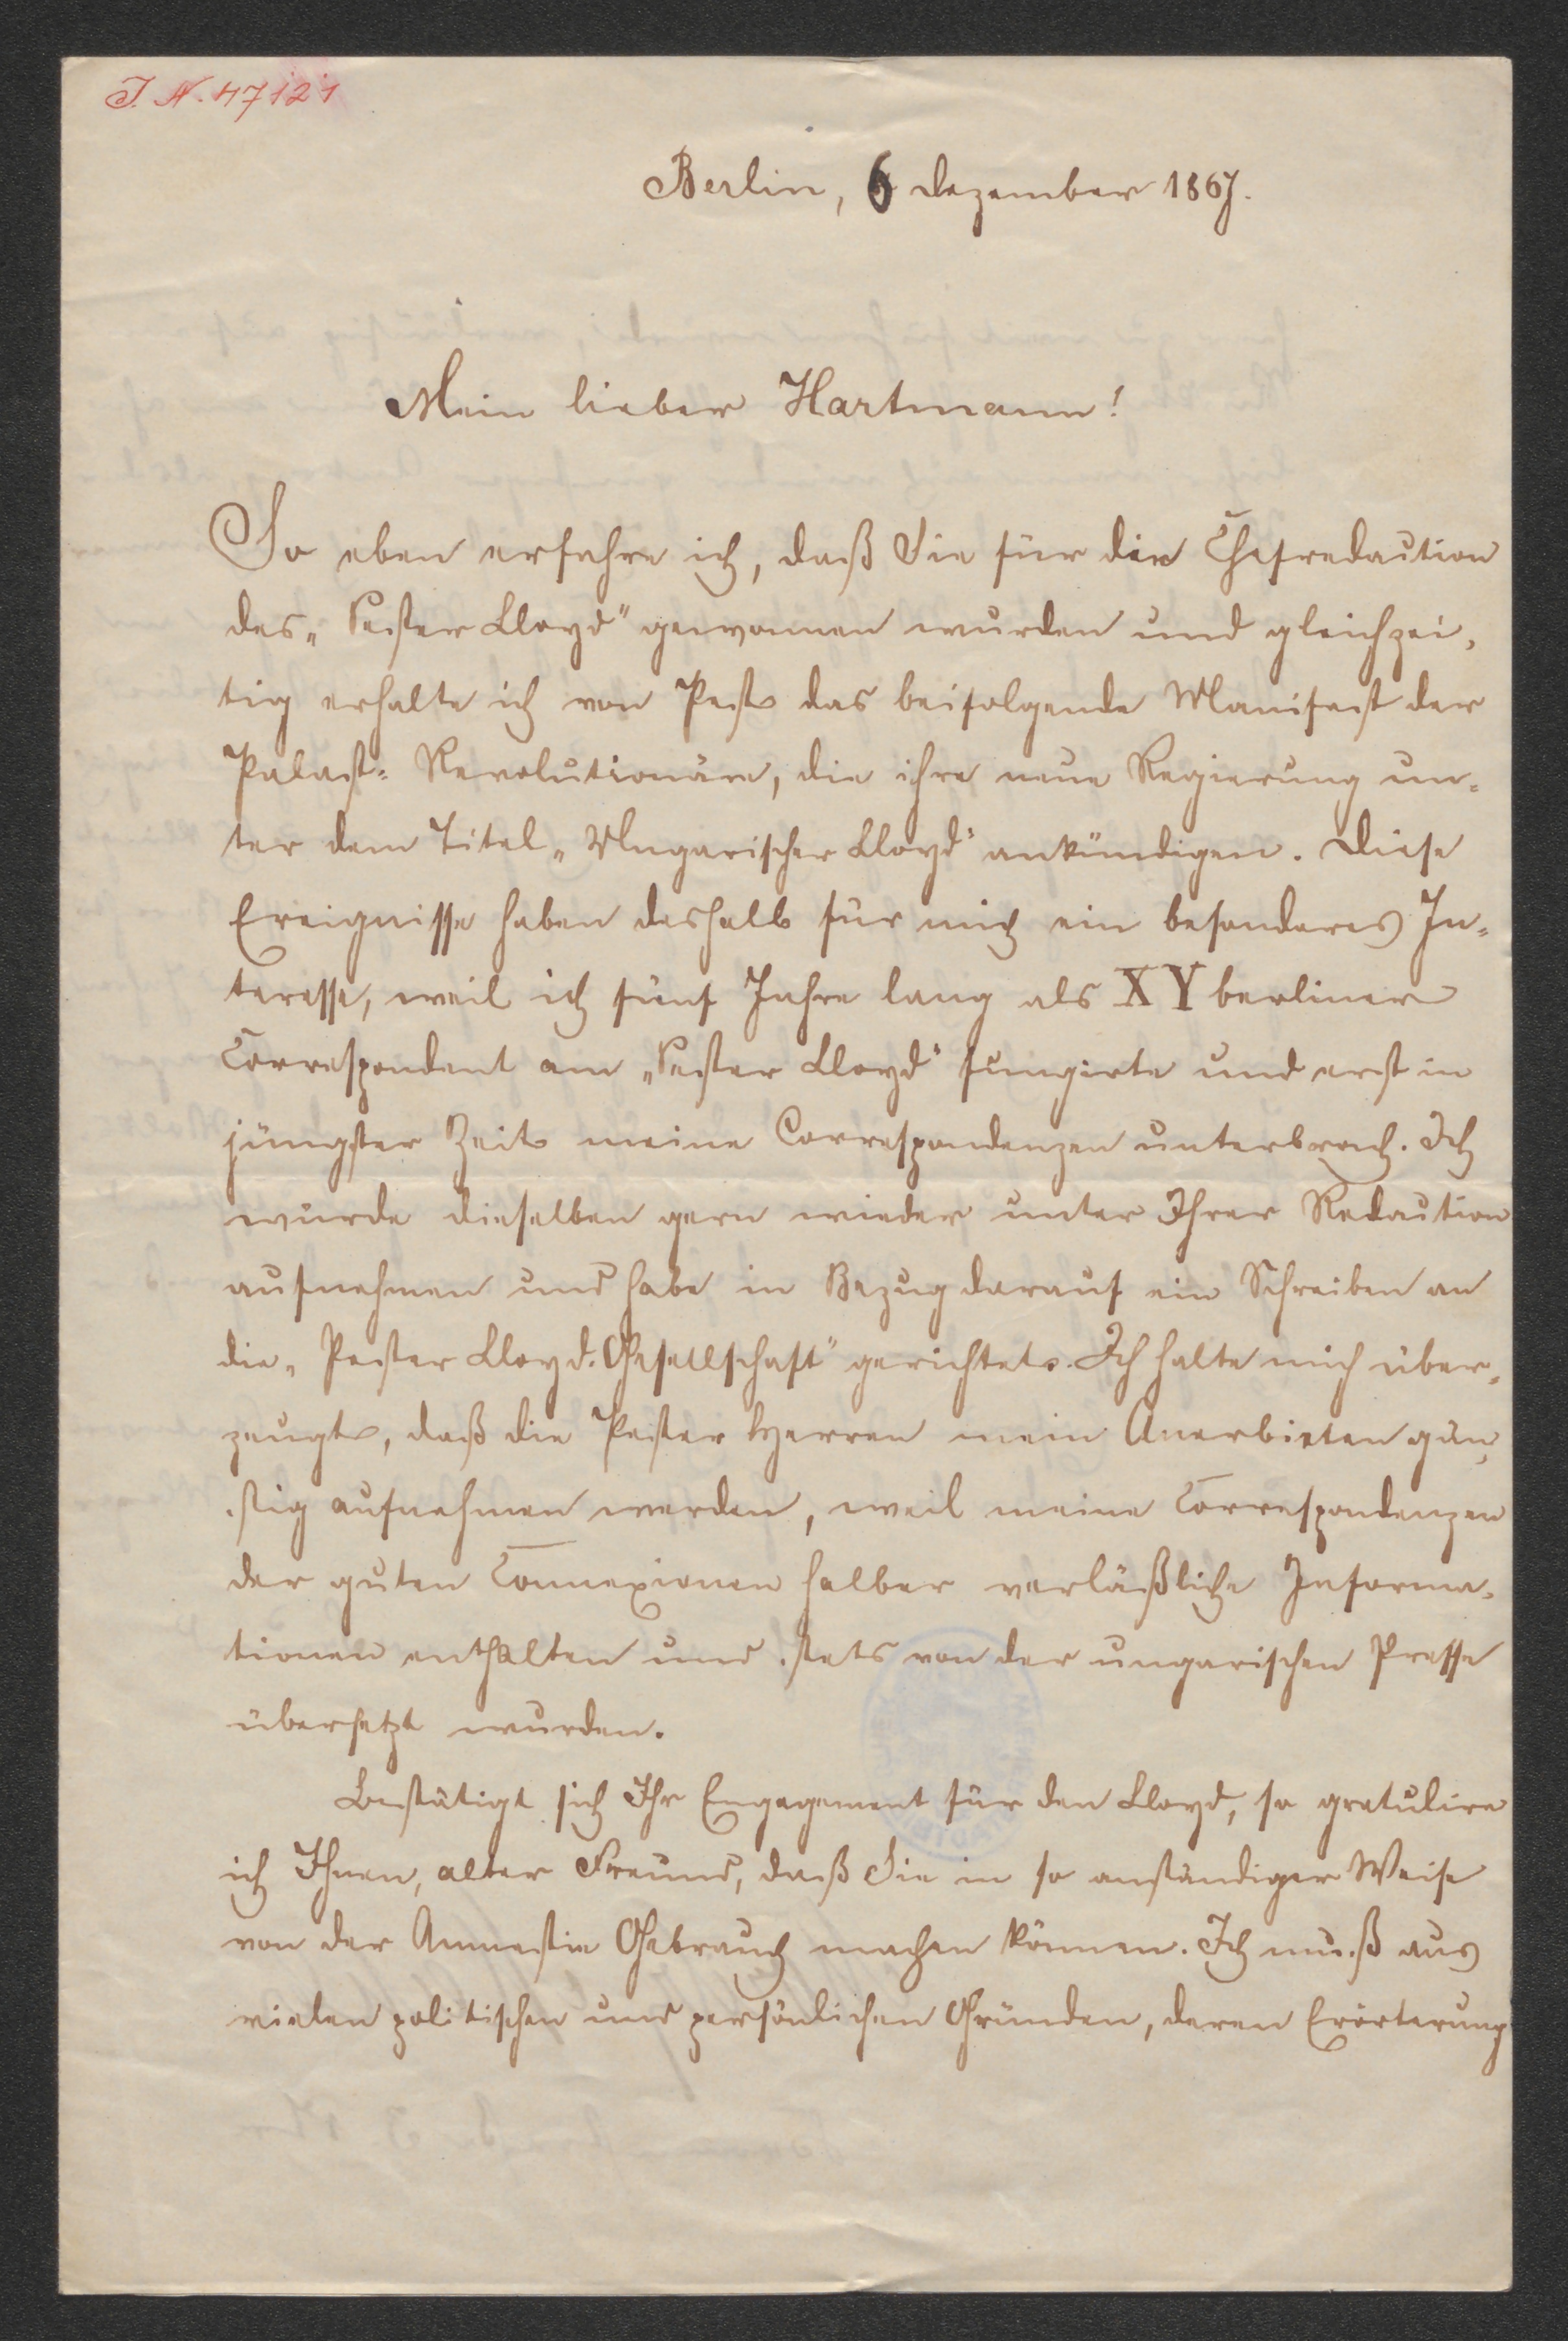 I. N. 47121
Berlin, 6 Dezember 1867.
Mein lieber Hartmann!
So eben erfahre ich, daß Sie für die Chefredaction
des „Pester Lloyd" gewonnen wurden und gleichzei-
tig erhalte ich von Pest das beifolgende Manifest der
Palast-Revolutionäre, die ihre neue Regierung un-
ter dem Titel „Ungarischer Lloyd" ankündigen. Diese
Ereignisse haben deshalb für mich ein besonderes In-
teresse, weil ich fünf Jahre lang als XY berliner
Correspondent am „Pester Lloyd" fungirte und erst in
jüngster Zeit meine Correspondenzen unterbrach. Ich
würde dieselben gern wieder unter Ihrer Redaction
aufnehmen und habe in Bezug darauf ein Schreiben an
die „Pester Lloyd-Gesellschaft" gerichtet. Ich halte mich über-
zeugt, daß die Pester Herren mein Anerbieten gün-
stig aufnehmen werden, weil meine Correspondenzen
der guten Connexionen halber verläßliche Informa-
tionen enthalten und stets von der ungarischen Presse
übersetzt wurden.
Bestätigt sich Ihr Engagement für den Lloyd, so gratulire
ich Ihnen, alter Freund, daß Sie in so anständiger Weise
von der Amnestie Gebrauch machen können. Ich muß aus
vielen politischen und persönlichen Gründen, deren Erörterung